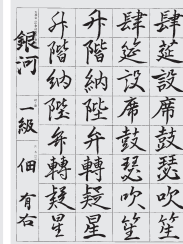 肆筵設席鼓瑟吹笙
肆筵設席鼓瑟吹笙
升階納陛弁轉疑星
升階納陛弁轉疑星
銀河 一級 佃 有右